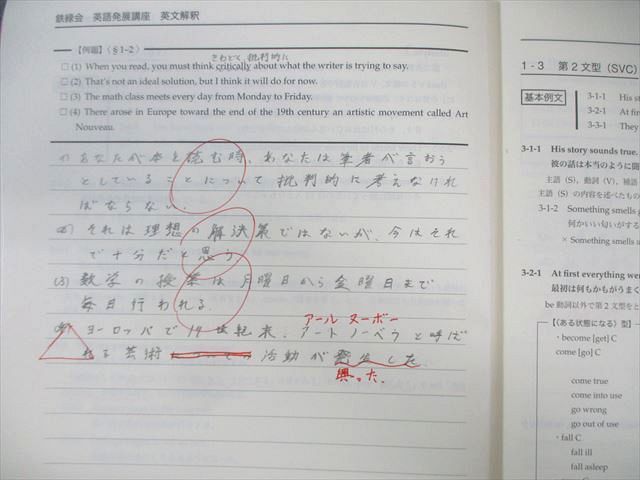 鉄緑会 英語発展講座 英文解釈
【例題】〈§1-2〉
批判的に
□ (1) When you read, you must think critically about what the writer is trying to say.
□ (2) That's not an ideal solution, but I think it will do for now.
□ (3) The math class meets every day from Monday to Friday.
□ (4) There arose in Europe toward the end of the 19th century an artistic movement called Art
Nouveau.
(1) あなたが本を読む時、あなたは筆者が言おう
としていることについて批判的に考えなけれ
ばならない.
(2) それは理想の解決策ではないが、今はそれ
で十分だと思う
(3) 数学の授業は月曜日から金曜日まで
毎日行われる.
アール ヌーボー
(4) ヨーロッパで19世紀末、アートノーベウと呼ば
れる芸術 活動が発生した.
興った.
1-3 第2文型 (SVC)
基本例文
3-1-1 His
3-2-1 At first
3-3-1 They
3-1-1 His story sounds true.
彼の話は本当のように聞
主語 (S), 動詞 (V), 補語
主語 (S) の内容を述べたもの
3-1-2 Something smells
何かいい匂いがする
× Something smells
3-2-1 At first everything
最初は何もかもがうまく
be 動詞以外で第2文型を
【〈ある状態になる〉型】
・become [get] C
come [go] C
come true
come into use
go wrong
go out of use
・fall C
fall ill
fall asleep